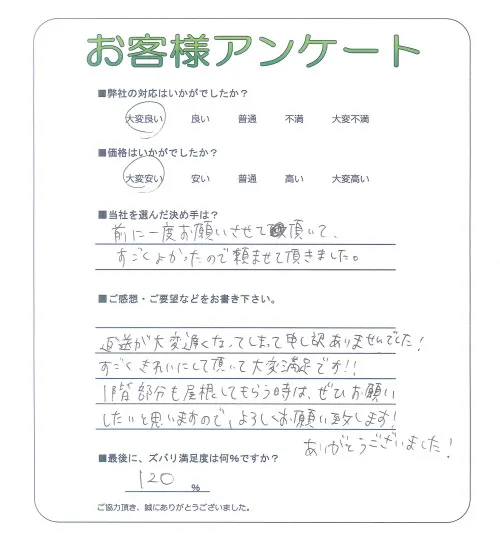 お客様アンケート
■弊社の対応はいかがでしたか?
大変良い 良い 普通 不満 大変不満
■価格はいかがでしたか?
大変安い 安い 普通 高い 大変高い
■当社を選んだ決め手は?
前に一度お願いさせて頂いて、
すごくよかったので頼ませて頂きました。
■ご感想・ご要望などをお書き下さい。
返送が大変遅くなってしまって申し訳ありませんでした!
すごくきれいにして頂いて大変満足です!!
1階部分も屋根してもらう時は、ぜひお願い
したいと思いますので、よろしくお願い致します!
ありがとうございました!
■最後に、ズバリ満足度は何%ですか?
120 %
ご協力頂き、誠にありがとうございました。